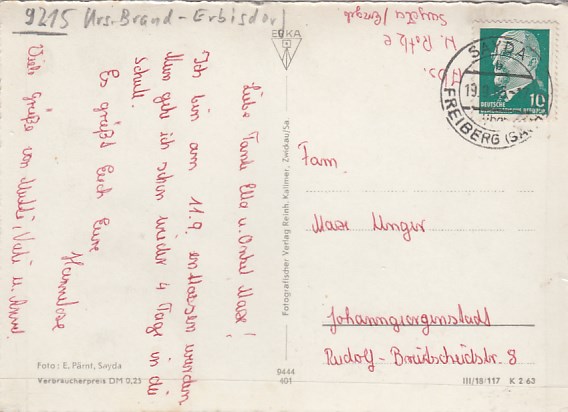 9215 Krs. Brand-Erbisdorf
H. Rothe
Sayda/Erzgeb.
Liebe Tante Ella u. Onkel Max!
Ich bin am 11.9. entlassen worden
Nun geh ich schon wieder 4 Tage in die
Schule.
Es grüßt Euch Eure
Hannelore
Viele Grüße von Mutti, Vati u.
Foto: E. Pärnt, Sayda
Verbraucherpreis DM 0,25
ERKA
Fotografischer Verlag Reinh. Kallmer, Zwickau/Sa.
9444
401
SAYDA
19
FREIBERG (SACHS)
DEUTSCHE
10
Fam.
Max Unger
Johanngeorgenstadt
Rudolf-Breitscheidstr. 8
III/18/117 K 2 63